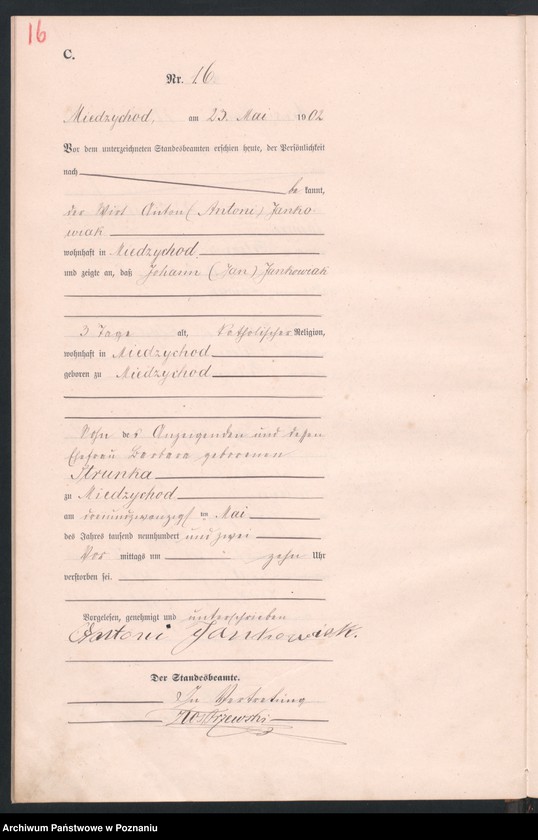 16
C.
Nr. 16
Miedzychod, am 23. Mai 1902
Vor dem unterzeichneten Standesbeamten erschien heute, der Persönlichkeit
nach
be kannt,
der Wirt Anton (Antoni) Janko-
wiak
wohnhaft in Miedzychod
und zeigte an, daß Johann (Jan) Jankowiak
3 Tage alt, katholischer Religion,
wohnhaft in Miedzychod
geboren zu Miedzychod
Sohn des Anzeigenden und dessen
Ehefrau Barbara geborenen
Strunka
zu Miedzychod
am dreiundzwanzigst en Mai
des Jahres tausend neunhundert und zwei
Vor mittags um zehn Uhr
verstorben sei.
Vorgelesen, genehmigt und unterschrieben
Antoni Jankowiak.
Der Standesbeamte.
In Vertretung
Archiwum Państwowe w Poznaniu